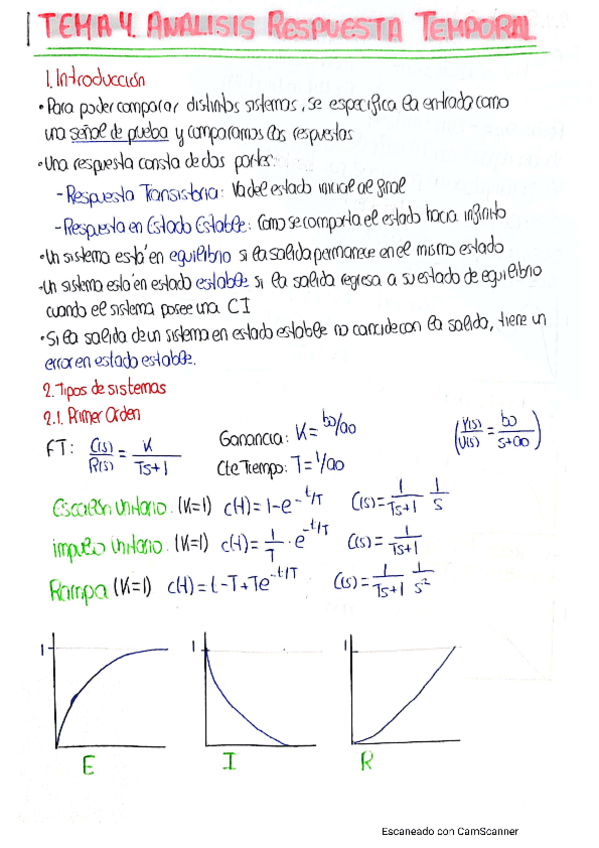 TEMA 4. ANALISIS RESPUESTA TEMPORAL
1. Introducción
• Para poder comparar distintos sistemas, se especifica la entrada como
una señal de prueba y comparamos las respuestas
• Una respuesta consta de dos partes:
- Respuesta Transistoria: Va del estado inicial al final
- Respuesta en Estado Estable: Como se comporta el estado hacia infinito
• Un sistema está en equilibrio si la salida permanece en el mismo estado
• Un sistema está en estado estable si la salida regresa a su estado de equilibrio
cuando el sistema posee una CI
• Si la salida de un sistema en estado estable no concide con la salida, tiene un
error en estado estable.
2. Tipos de sistemas
2.1. Primer Orden
FT: C(s)/R(s) = K/(Ts+1) Ganancia: K = b0/a0 (Y(s)/U(s) = b0/(s+a0))
Cte Tiempo: T = 1/a0
Escalón Unitario. (K=1) c(t) = 1-e^(-t/T) C(s) = 1/(Ts+1) 1/s
impulso Unitario. (K=1) c(t) = 1/T · e^(-t/T) C(s) = 1/(Ts+1)
Rampa (K=1) c(t) = t-T+Te^(-t/T) C(s) = 1/(Ts+1) 1/s²
1 1 1
E I R
Escaneado con CamScanner